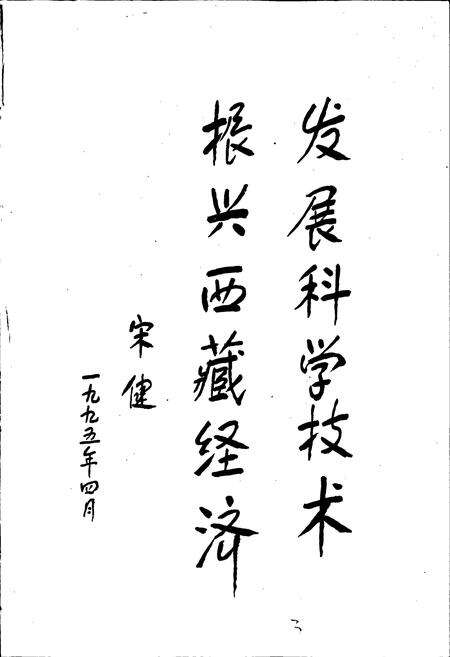 发展科学技术
振兴西藏经济
宋健
一九九五年四月